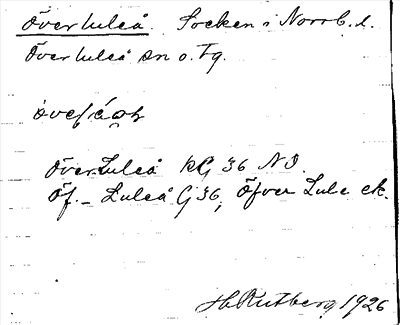 Överluleå. Socken i Norrb. l.
Överluleå sn o. Tg.
Överluleå RG 36 N.D.
Öf. - Luleå G 36, Öfver Lule ck.
H Rutberg 1926